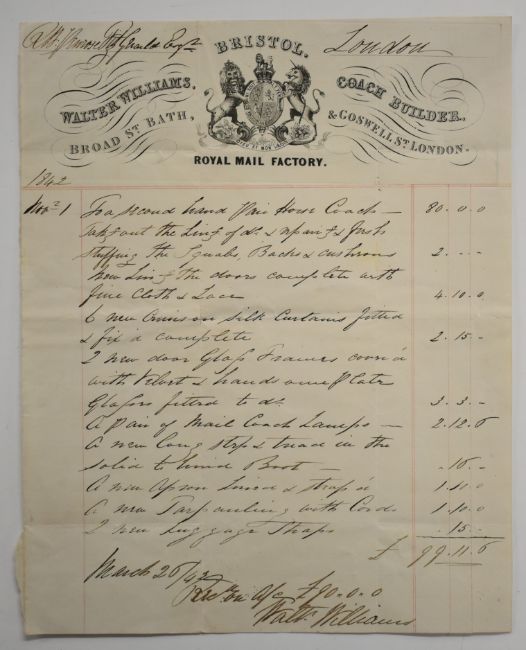 BRISTOL.
London
WALTER WILLIAMS,
COACH BUILDER,
BROAD ST BATH,
& GOSWELL ST LONDON.
ROYAL MAIL FACTORY.
1842
1 For a second hand Pair Horse Coach — 80.0.0
out the Ling of do. &
stuffing the Squabs Backs & cushions 2.-.-
New Ling the doors complete with
fine Cloth & Lace 4.10.0
6 new Crimson Silk Curtains fitted
& fix'd complete 2.15.-
2 new door Glass Frames cover'd
with Velvet & handsome Plate
Glasses fitted to do. 3.3.-
A pair of Mail Coach Lamps — 2.12.6
A new long step & tread in the
solid to hind Boot —
A new Apron Lined & strap'd
A new Tarpauling with Cords 1.10.0
2 new Luggage Straps .15.-
£ 99.11.6
March 26/42
Recd on a/c £90.0.0
Waltr Williams